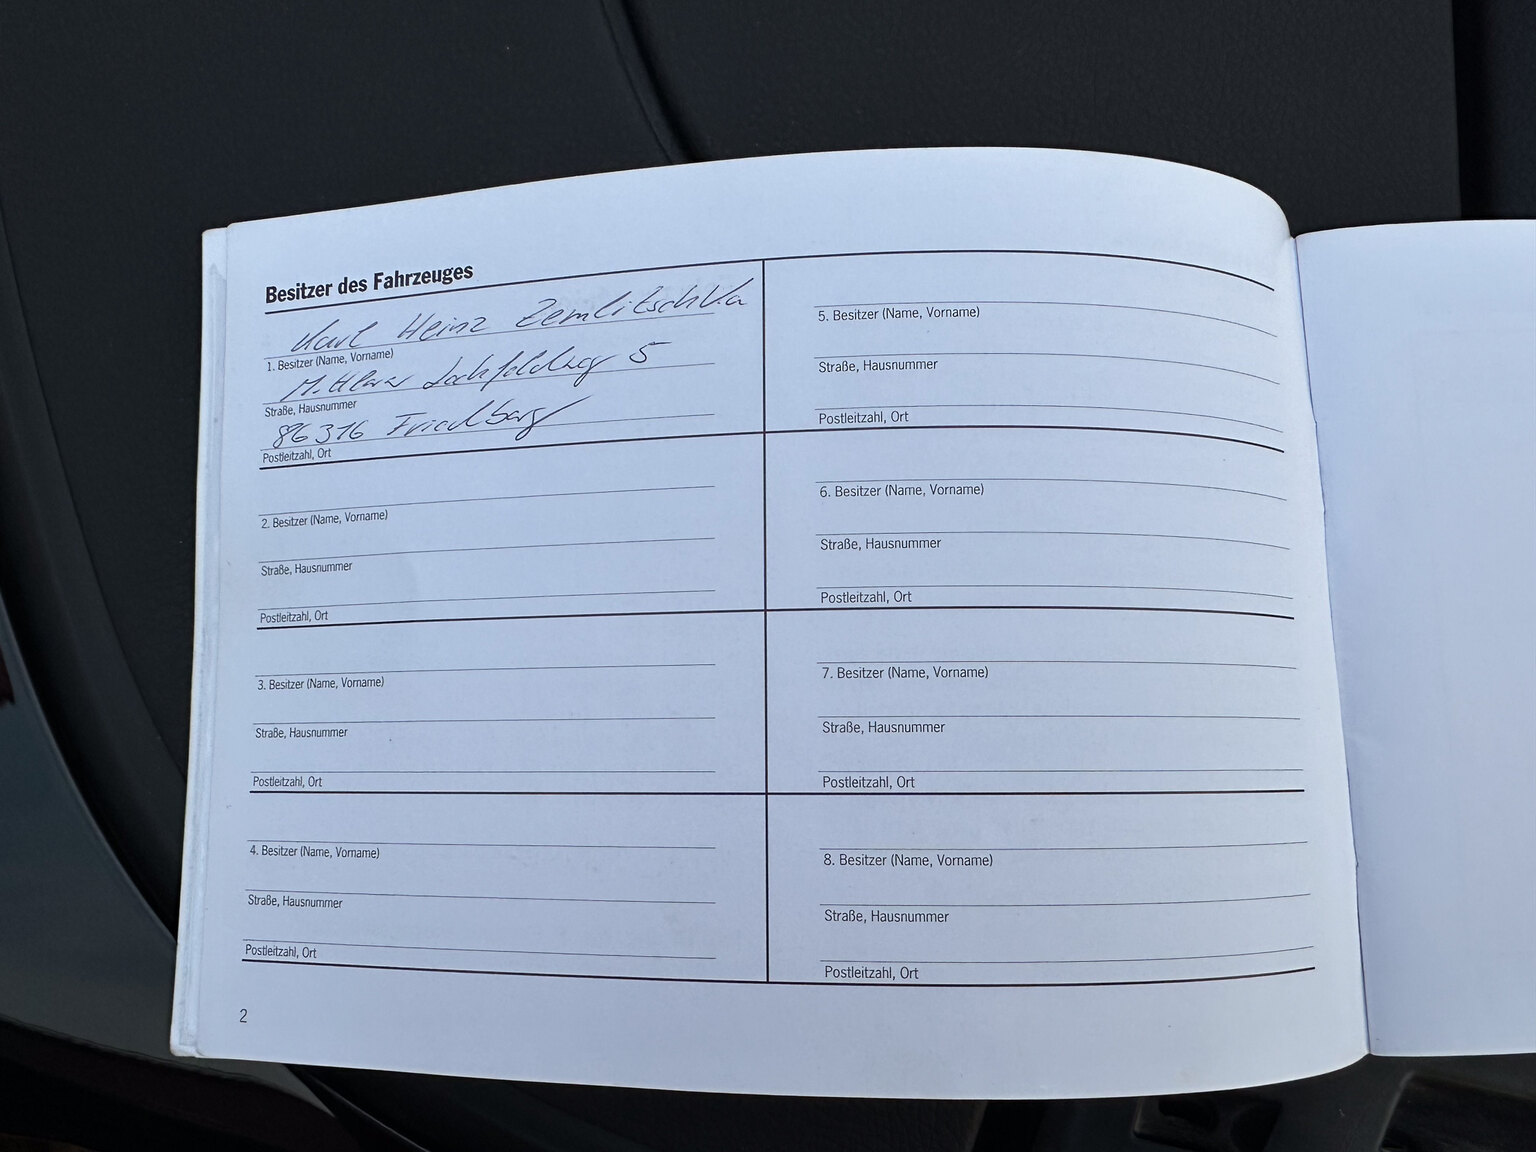 Besitzer des Fahrzeuges
Karl Heinz Zemlitschka
1. Besitzer (Name, Vorname)
Mittlerer Lechfeldweg 5
Straße, Hausnummer
86316 Friedberg
Postleitzahl, Ort
2. Besitzer (Name, Vorname)
Straße, Hausnummer
Postleitzahl, Ort
3. Besitzer (Name, Vorname)
Straße, Hausnummer
Postleitzahl, Ort
4. Besitzer (Name, Vorname)
Straße, Hausnummer
Postleitzahl, Ort
5. Besitzer (Name, Vorname)
Straße, Hausnummer
Postleitzahl, Ort
6. Besitzer (Name, Vorname)
Straße, Hausnummer
Postleitzahl, Ort
7. Besitzer (Name, Vorname)
Straße, Hausnummer
Postleitzahl, Ort
8. Besitzer (Name, Vorname)
Straße, Hausnummer
Postleitzahl, Ort
2